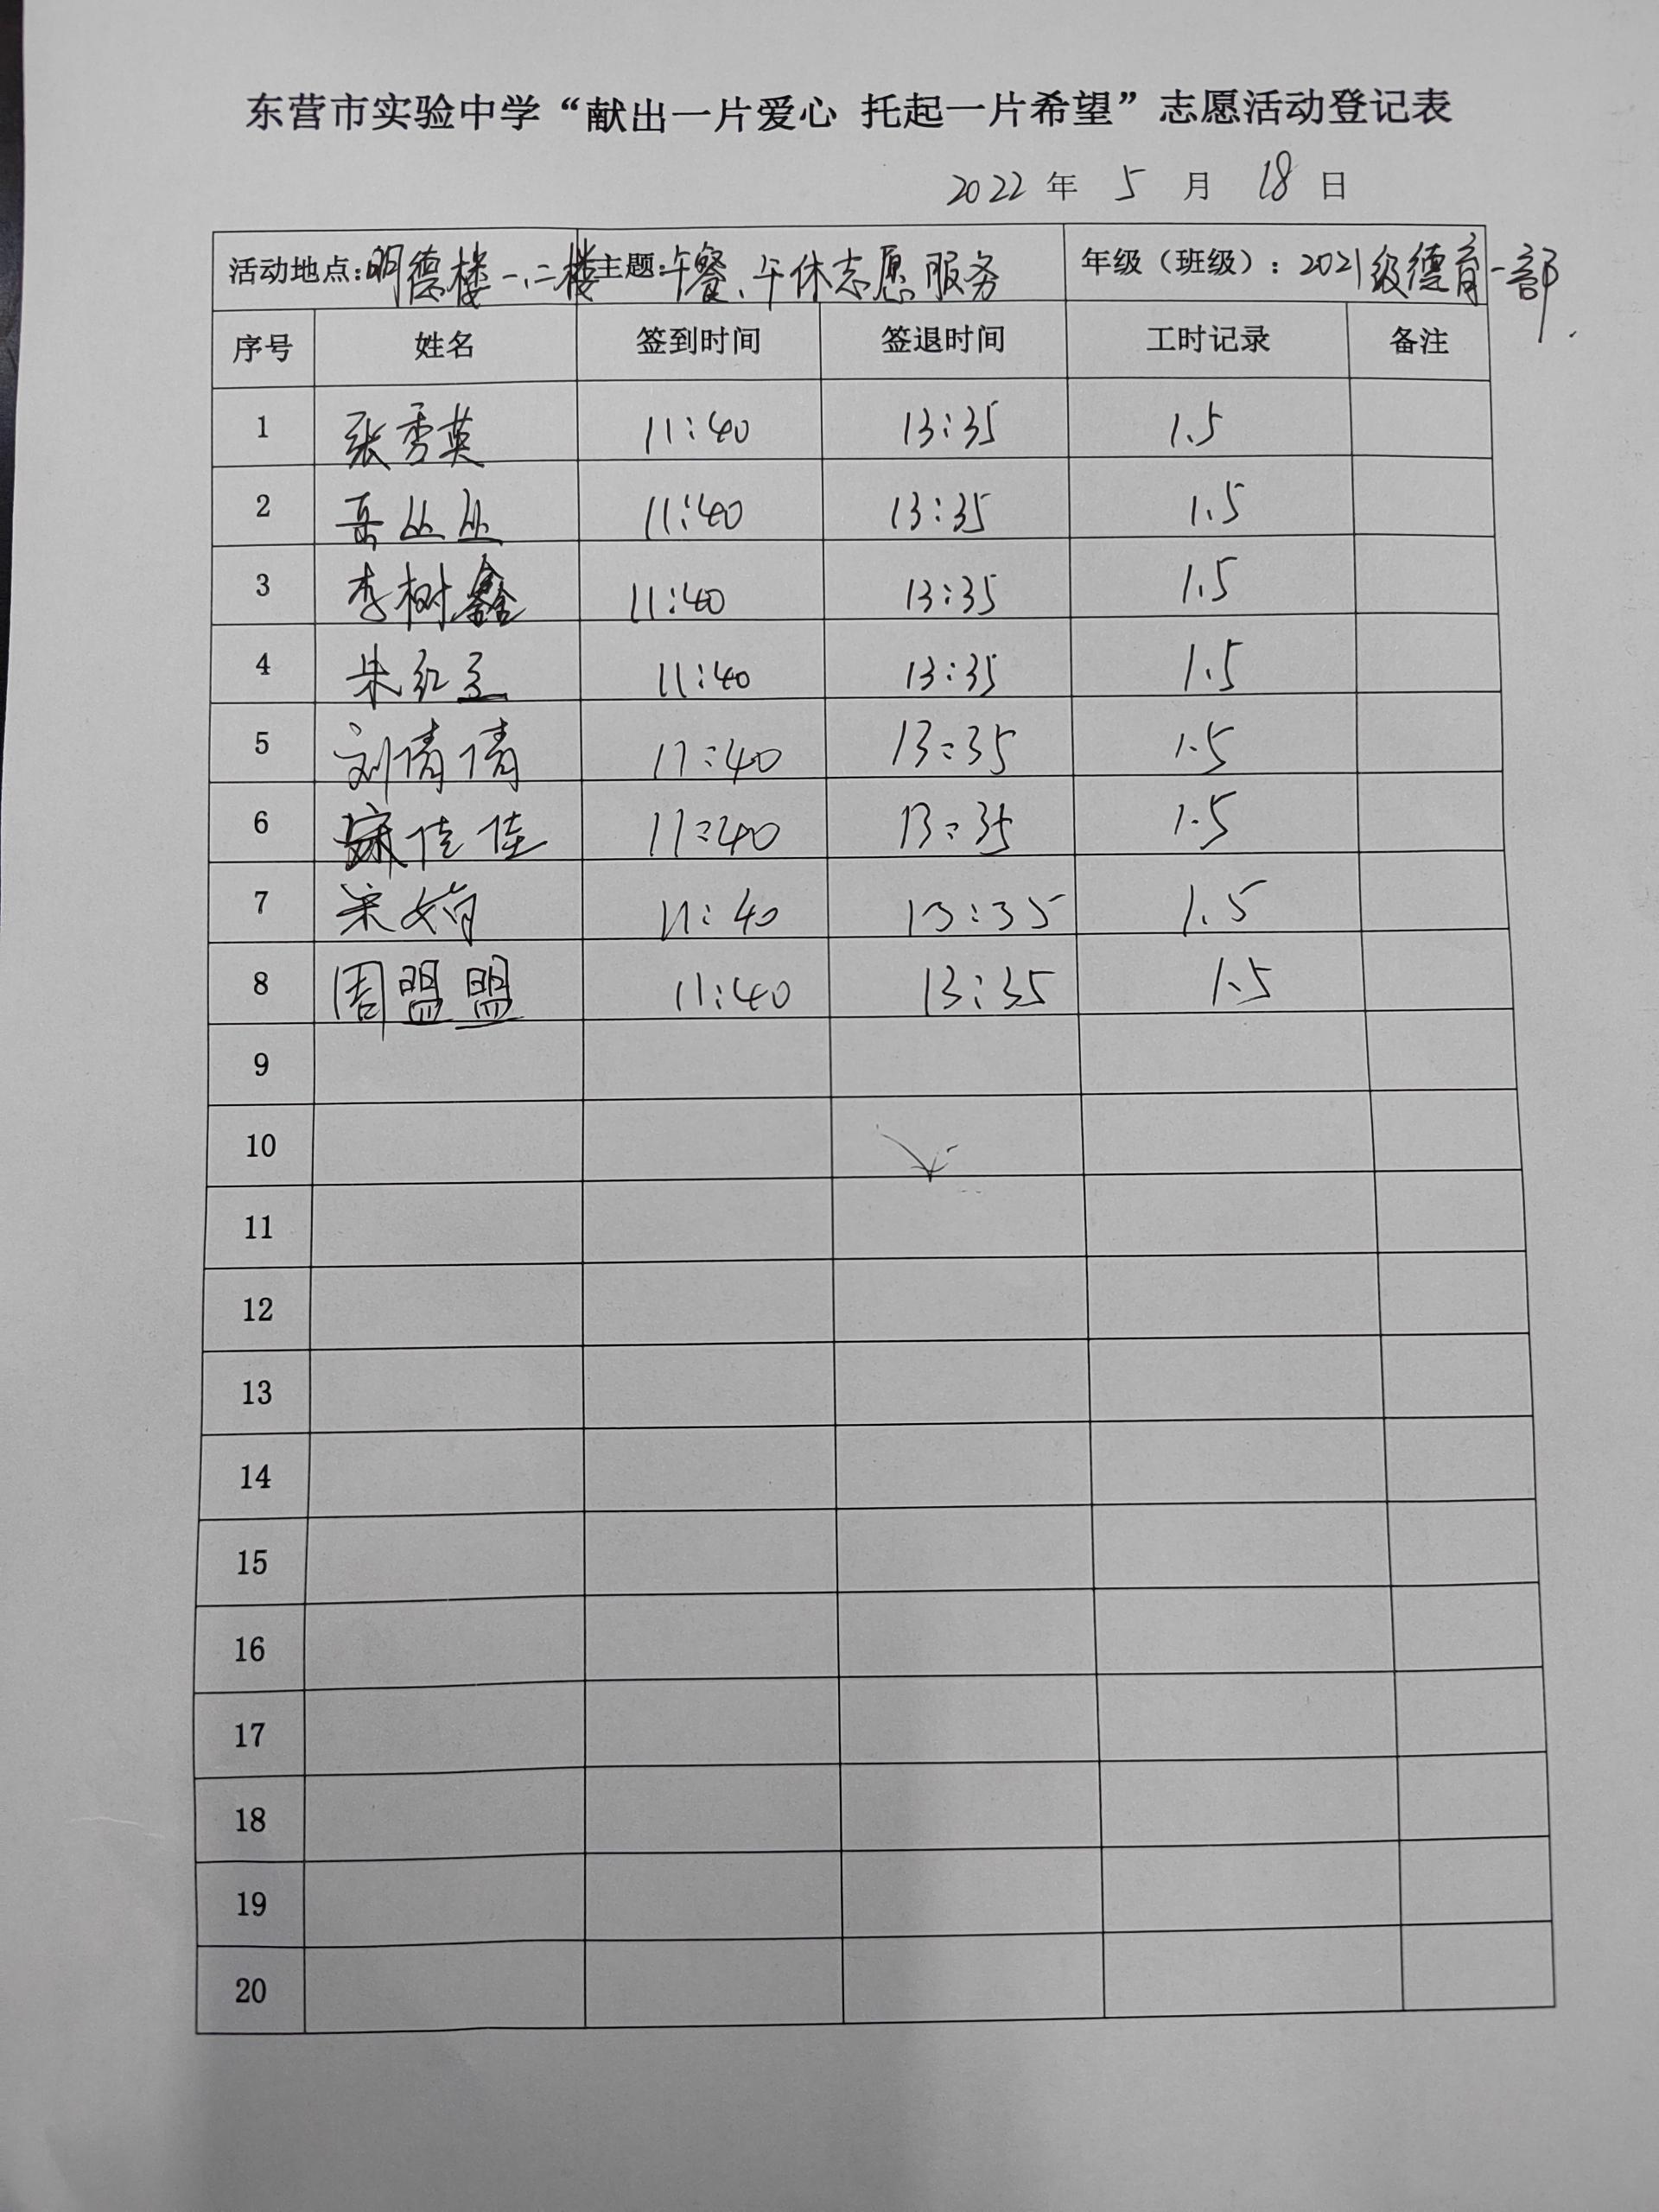 东营市实验中学“献出一片爱心 托起一片希望”志愿活动登记表
2022 年 5 月 18 日
活动地点:明德楼一、二楼 主题:午餐、午休志愿服务 年级（班级）: 2021级德育一部.
序号 姓名 签到时间 签退时间 工时记录 备注
1 张秀英 11:40 13:35 1.5
2 岳丛丛 11:40 13:35 1.5
3 李树鑫 11:40 13:35 1.5
4 朱红 11:40 13:35 1.5
5 刘倩倩 11:40 13:35 1.5
6 佳佳 11:40 13:35 1.5
7 宋 11:40 13:35 1.5
8 周盟盟 11:40 13:35 1.5
9
10
11
12
13
14
15
16
17
18
19
20